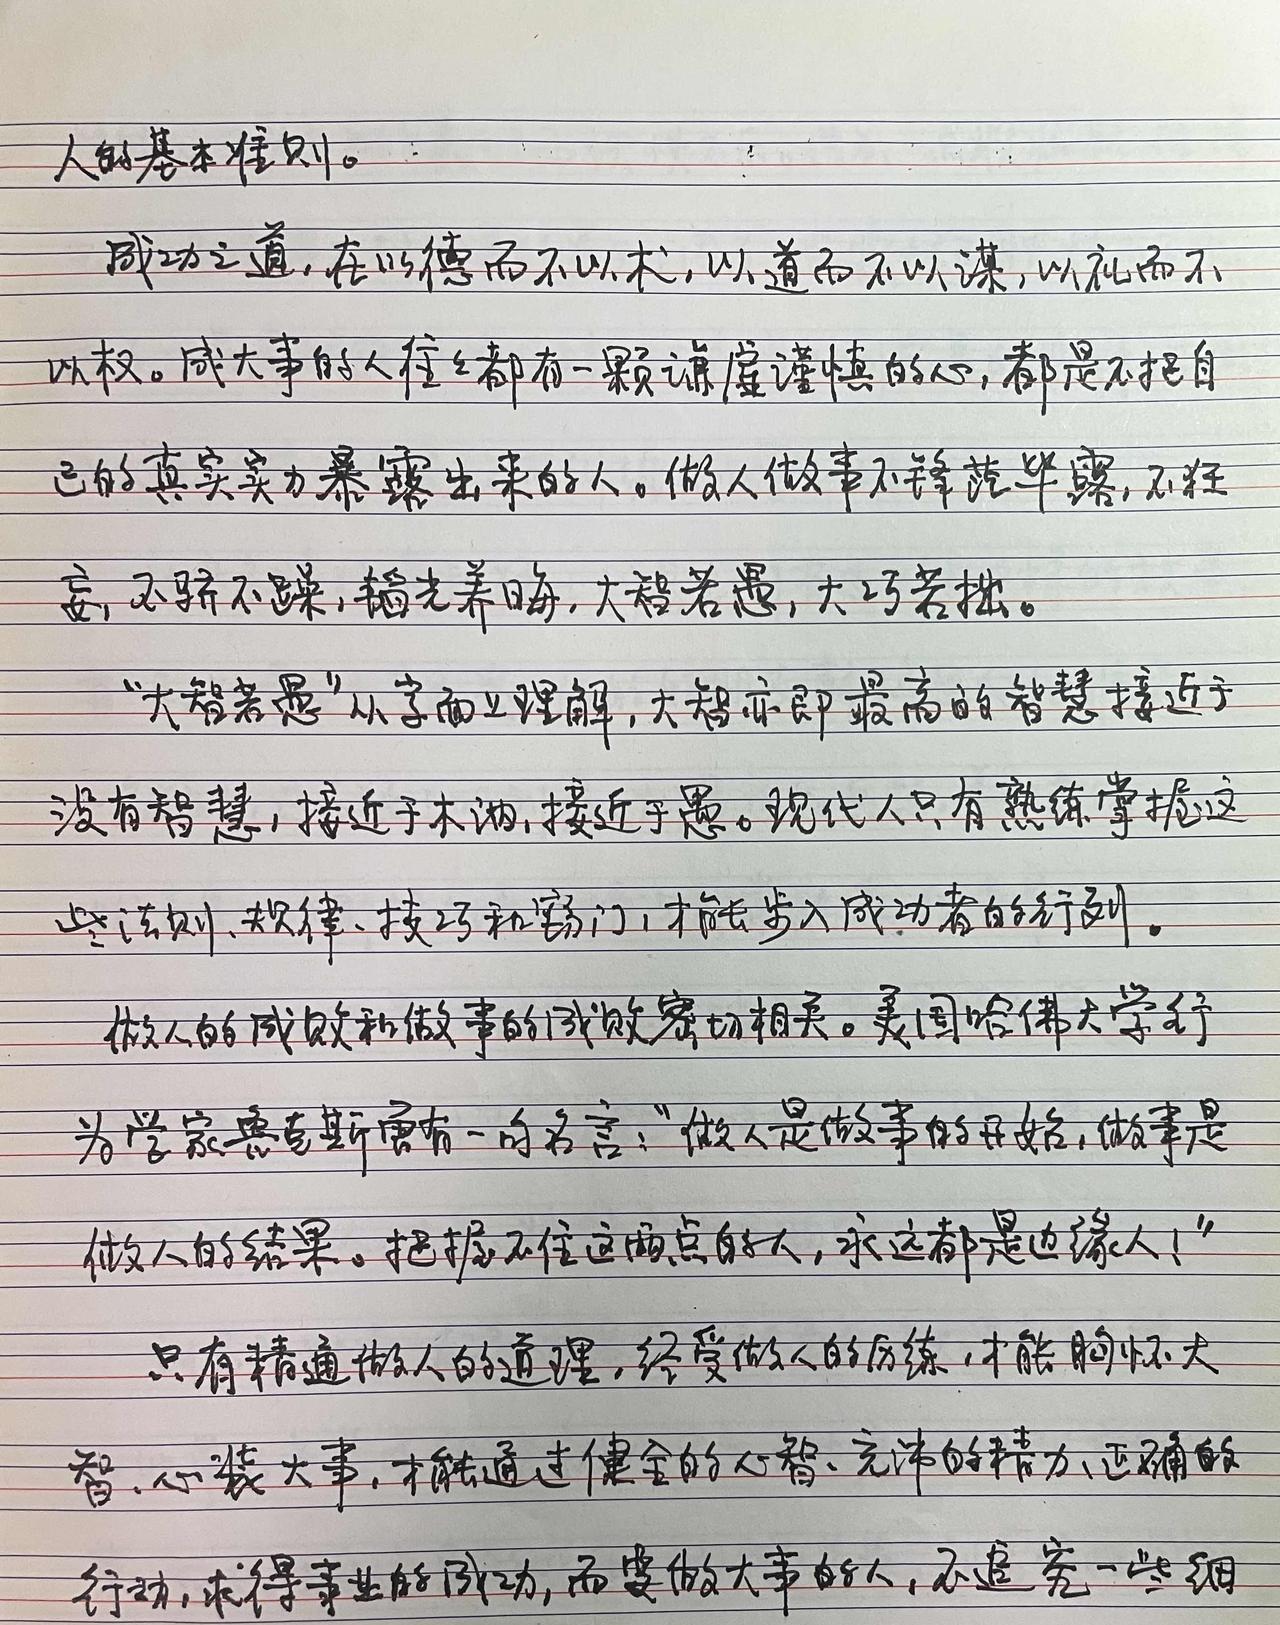 人的基本准则。
成功之道，在以德而不以术，以道而不以谋，以礼而不
以权。成大事的人往往都有一颗谦虚谨慎的心，都是不把自
己的真实实力暴露出来的人。做人做事不锋芒毕露，不狂
妄，不骄不躁，韬光养晦，大智若愚，大巧若拙。
“大智若愚”从字面上理解，大智亦即最高的智慧接近于
没有智慧，接近于木讷，接近于愚。现代人只有熟练掌握这
些法则、规律、技巧和窍门，才能步入成功者的行列。
做人的成败和做事的成败密切相关。美国哈佛大学行
为学家鲁克斯曾有一句名言：“做人是做事的开始，做事是
做人的结果。把握不住这两点的人，永远都是边缘人！”
只有精通做人的道理，经受做人的历练，才能胸怀大
智、心装大事，才能通过健全的心智、充沛的精力、正确的
行动，求得事业的成功，而要做大事的人，不追究一些细